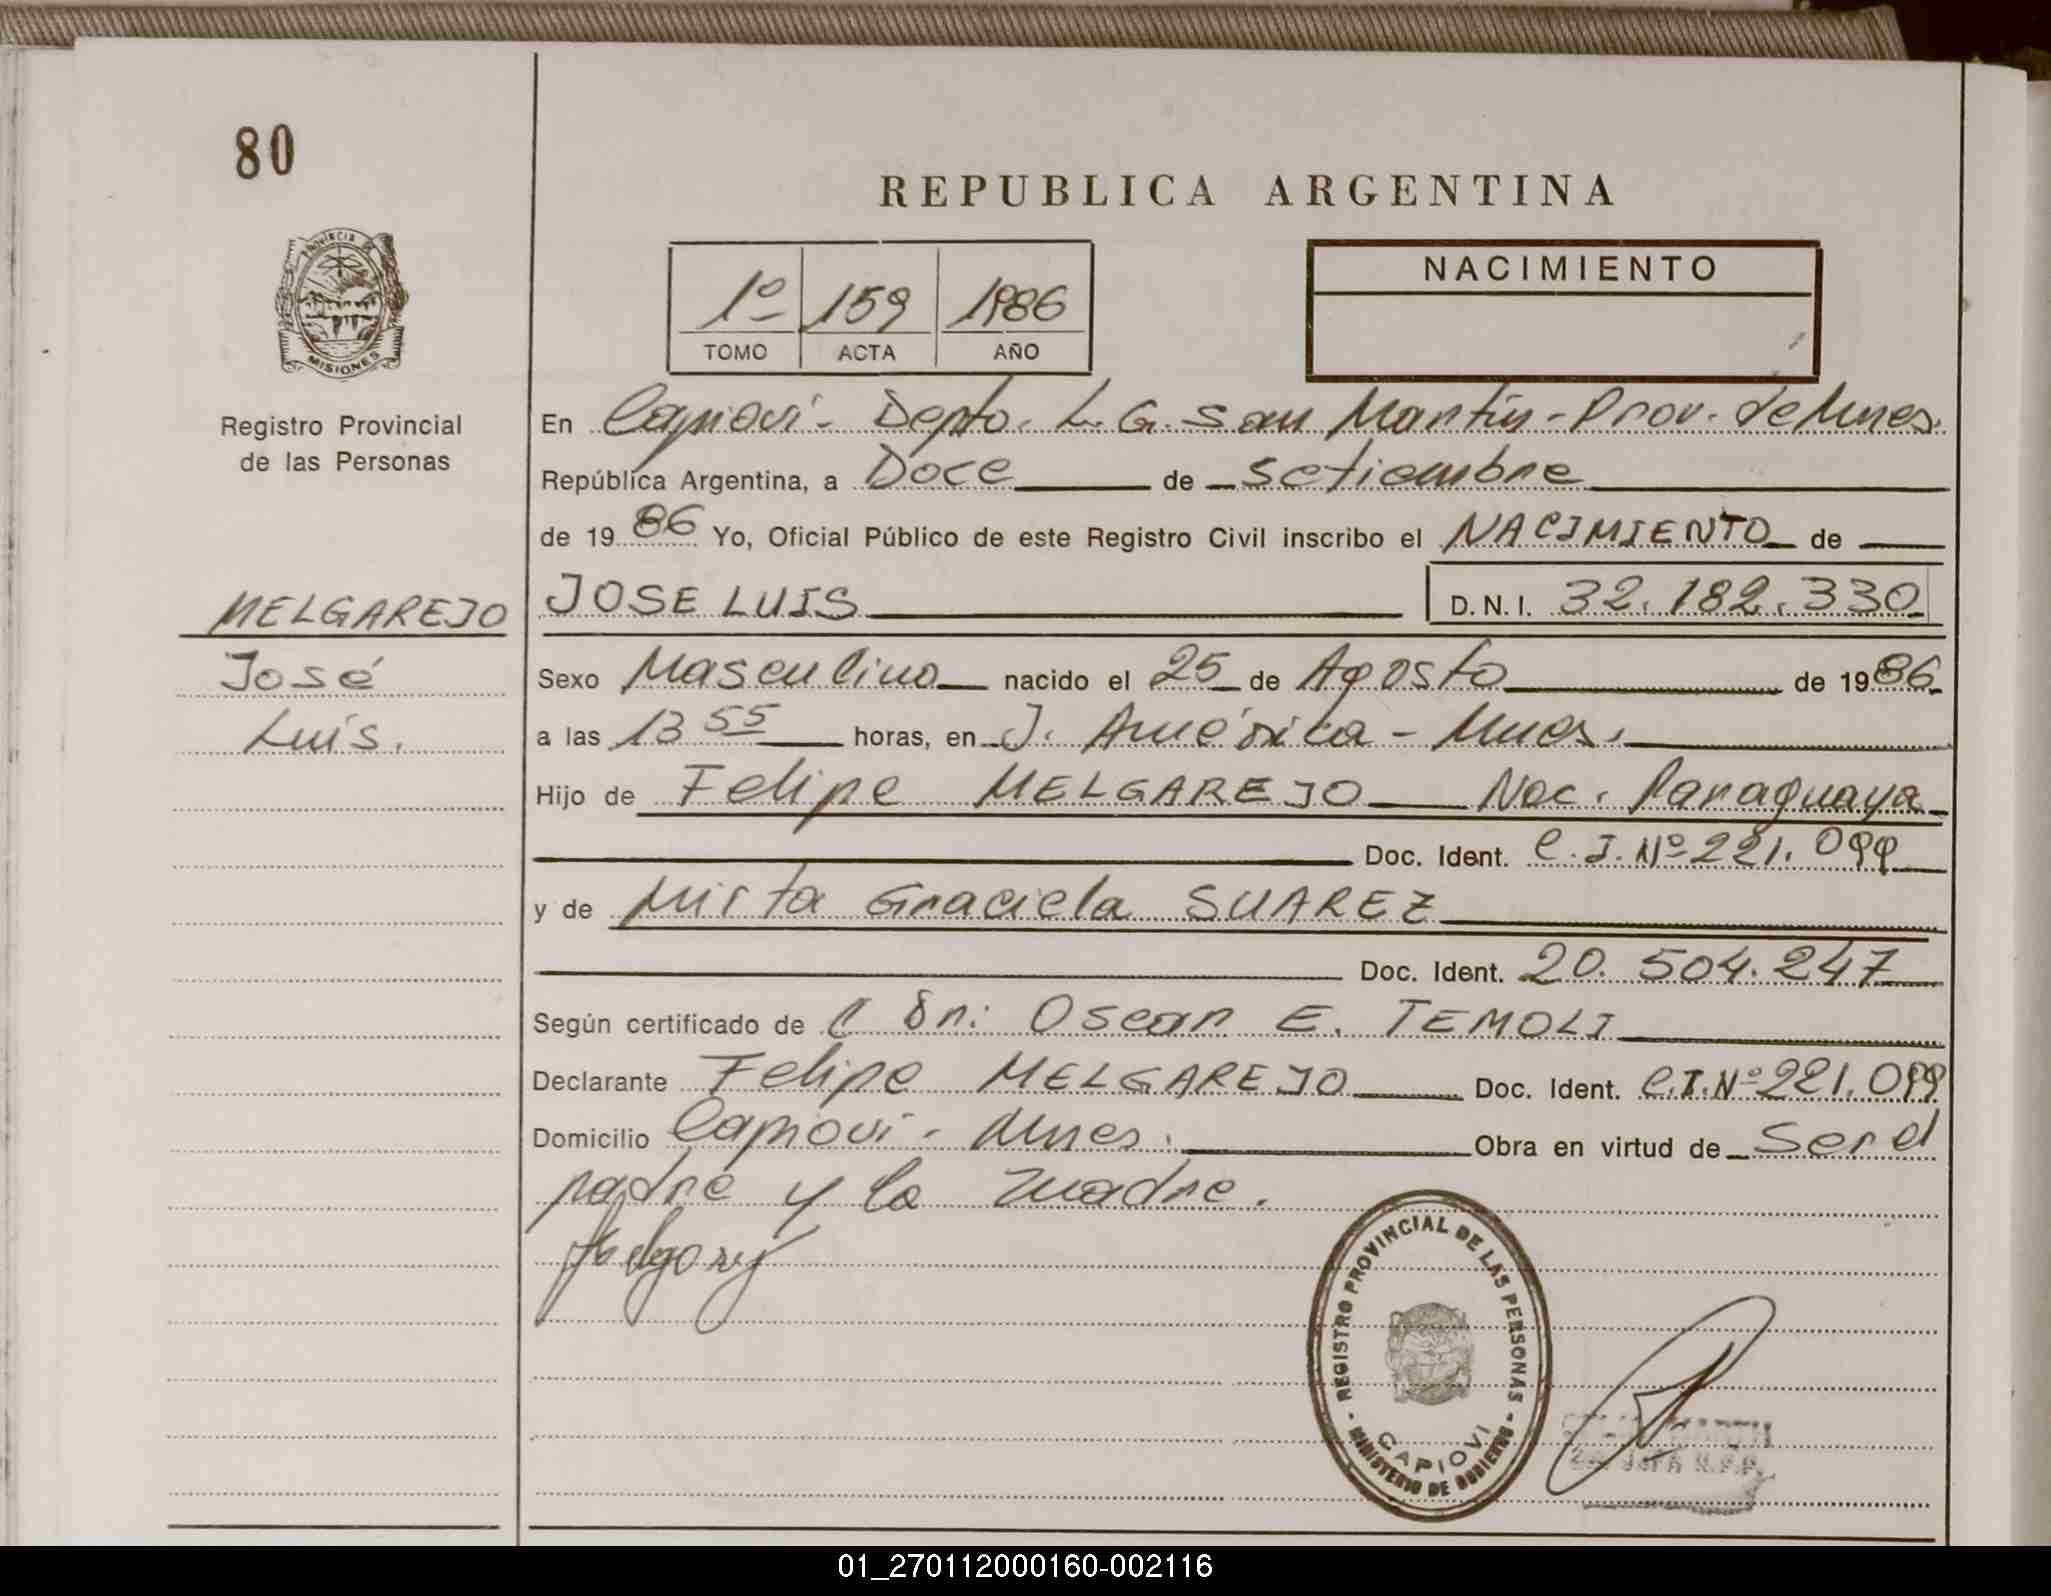 80
REPUBLICA ARGENTINA
PROVINCIA DE
MISIONES
1º 159 1986
TOMO ACTA AÑO
NACIMIENTO
Registro Provincial
de las Personas
En Capioví - Depto. L. G. San Martín - Prov. de Mnes.
República Argentina, a Doce de setiembre
de 19 86 Yo, Oficial Público de este Registro Civil inscribo el NACIMIENTO de
MELGAREJO
José
Luis.
JOSE LUIS D.N.I. 32.182.330
Sexo Masculino nacido el 25 de Agosto de 1986.
a las 13 55 horas, en J. América - Mnes.
Hijo de Felipe MELGAREJO Nac. Paraguaya
Doc. Ident. C.I. Nº 221.099
y de Mirta Graciela SUAREZ
Doc. Ident. 20.504.247
Según certificado de Dr: Oscar E. TEMOLI
Declarante Felipe MELGAREJO Doc. Ident. C.I. Nº 221.099
Domicilio Capioví - Mnes. Obra en virtud de ser el
padre y la madre.
REGISTRO PROVINCIAL DE LAS PERSONAS
CAPIOVI
MINISTERIO DE GOBIERNO
01_270112000160-002116